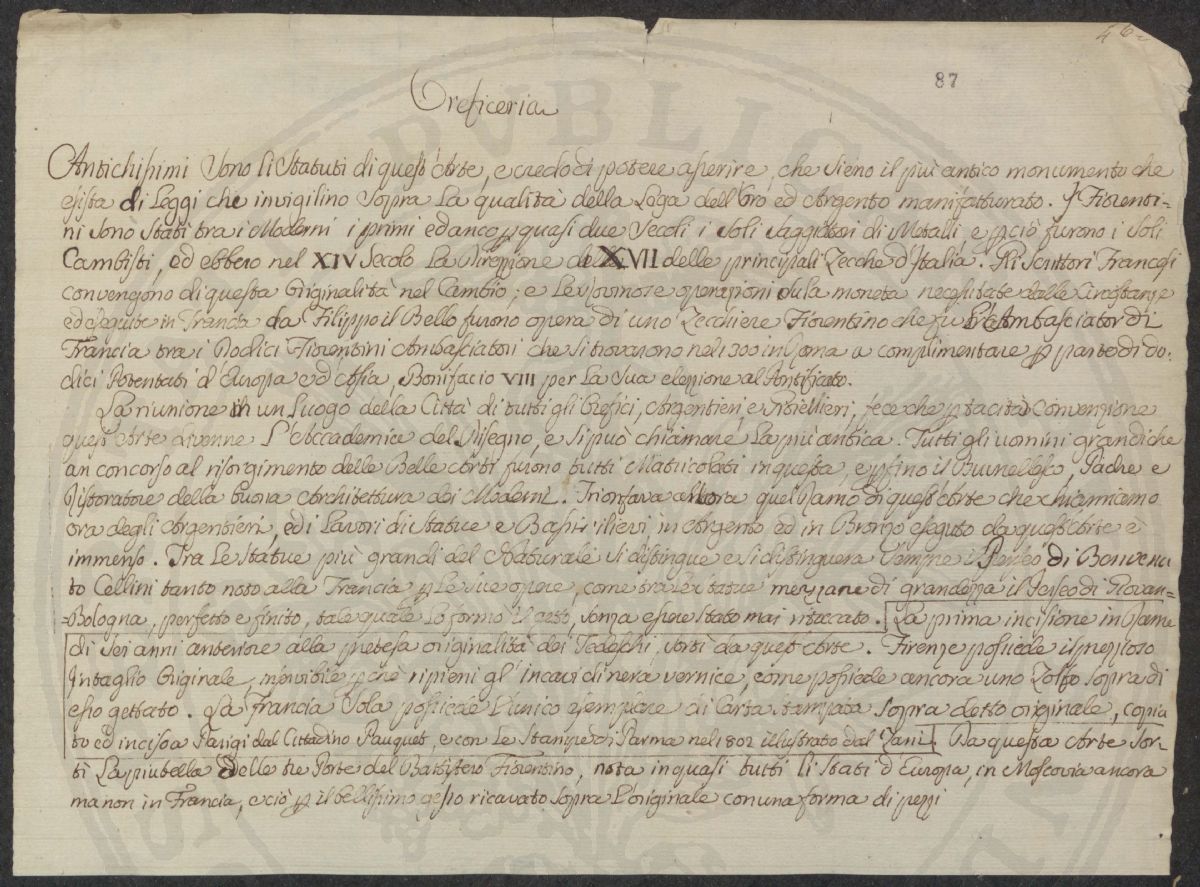 46
87
Oreficeria
Antichissimi sono li Statuti di quest'Arte, e credo di potere asserire, che sieno il più antico monumento che
esista di Leggi che invigilino sopra La qualità della Lega dell'Oro ed Argento manifatturato. I Fiorenti-
ni sono stati tra i Moderni i primi ed anco p quasi due Secoli i soli Saggiatori di Metalli e pciò furono i soli
Cambisti, ed ebbero nel XIV Secolo La Direzzione del XVII delle principali Zecche d'Italia. Gli Scrittori Francesi
convengono di questa Originalità nel Cambio; e Le rovinose operazioni sula moneta necessitate dalle Circostanze
ed eseguite in Francia da Filippo il Bello furono opera di uno Zecchiere Fiorentino che fu Ambasciator di
Francia tra i Dodici Fiorentini Ambasciatori che si trovarono nel 1300 in Roma a complimentare p parte di do-
dici Potentati d'Europa ed Asia, Bonifacio VIII per La sua elezzione al Pontificato.
La riunione in un Luogo della Città di tutti gli Orefici, Argentieri, e Gioiellieri, fece che p tacita Convenzione
quest'Arte divenne L'Accademia del Disegno, e si può chiamare La più antica. Tutti gli uomini grandi che
an concorso al risorgimento delle Belle Arti furono tutti Matricolati in questa, e pfino il Brunellesco Padre e
Ristoratore della buona Architettura dei Moderni. Trionfava allora quel Ramo di quest'Arte che chiamiamo
ora degli Argentieri, ed i Lavori di Statue e Bassi-rilievi in Argento ed in Bronzo eseguto da quest'Arte è
immenso. Tra Le Statue più grandi del Naturale si distingue e si distinguera sempre il Perseo di Benvenu
to Cellini tanto noto alla Francia p Le sue opere, come tra Le statue mezzane di grandezza il Perseo di Giovan-
-Bologna, perfetto e finito, tale quale Lo formò il getto, senza essere stato mai ritoccato. La prima incisione in Rame
di sei anni anteriore alla pretesa originalità dei Tedeschi, sortì da quest'Arte. Firenze possiede il prezioso
Intaglio Originale, invisibile pchè ripieni gl'incavi di nera vernice, come possiede ancora uno Zolfo sopra di
esso gettato. La Francia sola possiede L'unico esemplare di Carta stampata sopra detto originale, copia
to ed inciso a Parigi dal Cittadino Pauquet, e con Le Stampe di Parma nel 1802 illustrato dal Zani. Da questa Arte sor-
tì La piu bella delle tre Porte del Battistero Fiorentino, nota in quasi tutti li Stati d'Europa, in Moscovia ancora
ma non in Francia, e ciò p il bellissimo gesso ricavato sopra L'originale con una forma di pezzi